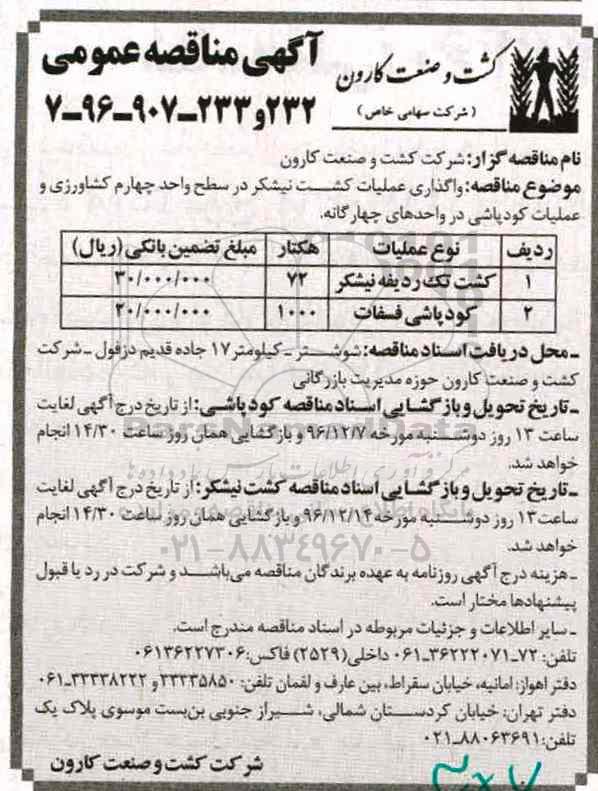 آگهی مناقصه عمومی
۲۳۲و۲۳۳-۹۰۷-۹۶-۷
کشت و صنعت کارون
(شرکت سهامی خاص)
نام مناقصه گزار: شرکت کشت و صنعت کارون
موضوع مناقصه: واگذاری عملیات کشت نیشکر در سطح واحد چهارم کشاورزی و
عملیات کودپاشی در واحدهای چهارگانه.
ردیف نوع عملیات هکتار مبلغ تضمین بانکی (ریال)
۱ کشت تک ردیفه نیشکر ۷۲ ۳۰/۰۰۰/۰۰۰
۲ کودپاشی فسفات ۱۰۰۰ ۲۰/۰۰۰/۰۰۰
- محل دریافت اسناد مناقصه: شوشتر - کیلومتر ۱۷ جاده قدیم دزفول - شرکت
کشت و صنعت کارون حوزه مدیریت بازرگانی
- تاریخ تحویل و بازگشایی اسناد مناقصه کودپاشی: از تاریخ درج آگهی لغایت
ساعت ۱۳ روز دوشنبه مورخه ۹۶/۱۲/۷ و بازگشایی همان روز ساعت ۱۴/۳۰ انجام
خواهد شد.
- تاریخ تحویل و بازگشایی اسناد مناقصه کشت نیشکر: از تاریخ درج آگهی لغایت
ساعت ۱۳ روز دوشنبه مورخه ۹۶/۱۲/۱۴ و بازگشایی همان روز ساعت ۱۴/۳۰ انجام
خواهد شد.
- هزینه درج آگهی روزنامه به عهده برندگان مناقصه می‌باشد و شرکت در رد یا قبول
پیشنهادها مختار است.
- سایر اطلاعات و جزئیات مربوطه در اسناد مناقصه مندرج است.
تلفن: ۷۲-۳۶۲۲۲۰۷۱-۰۶۱ داخلی (۲۵۲۹) فاکس: ۰۶۱۳۶۲۲۷۳۰۶
دفتر اهواز: امانیه، خیابان سقراط، بین عارف و لقمان تلفن: ۳۳۳۳۵۸۵۰ و ۳۳۳۳۸۲۲۲-۰۶۱
دفتر تهران: خیابان کردستان شمالی، شیراز جنوبی بن‌بست موسوی پلاک یک
تلفن: ۸۸۰۶۳۶۹۱-۰۲۱
شرکت کشت و صنعت کارون
ParsNamadData
۰۲۱-۸۸۳۴۹۶۷۰-۵